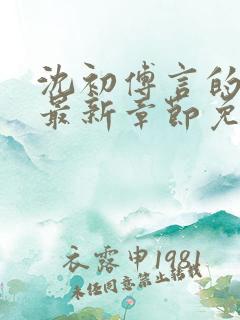 沈初傅言的
最新章节免
衣露申1981
未经同意禁止转载